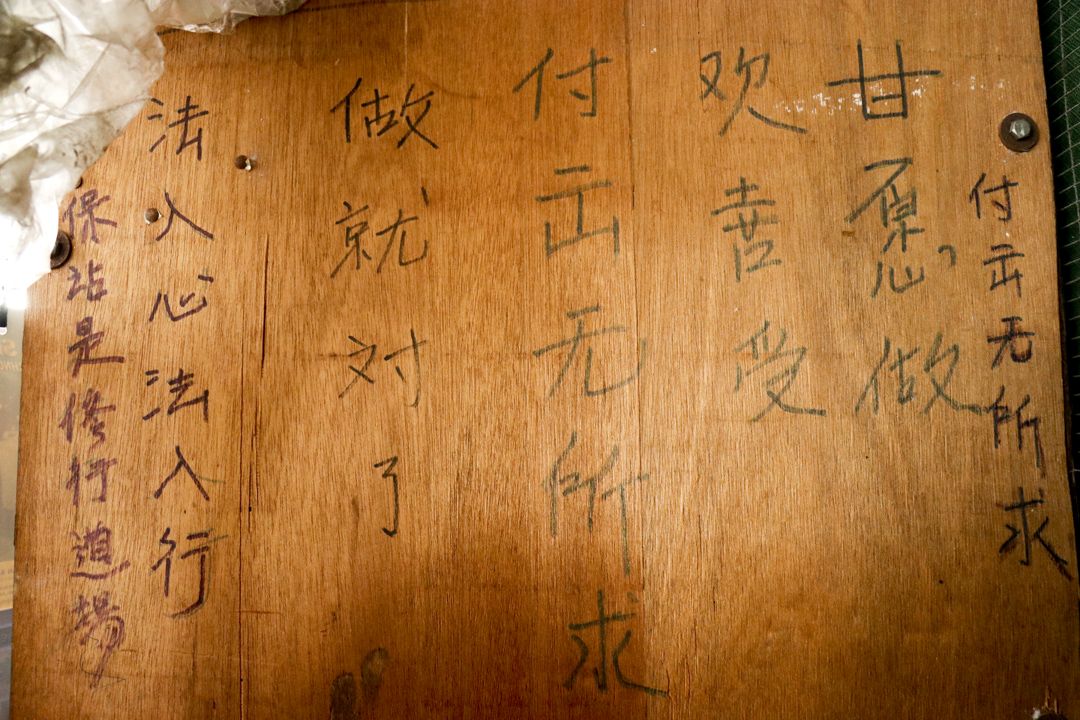 付出无所求
甘愿做
欢喜受
付出无所求
做就对了
法入心法入行
保站是修行道場